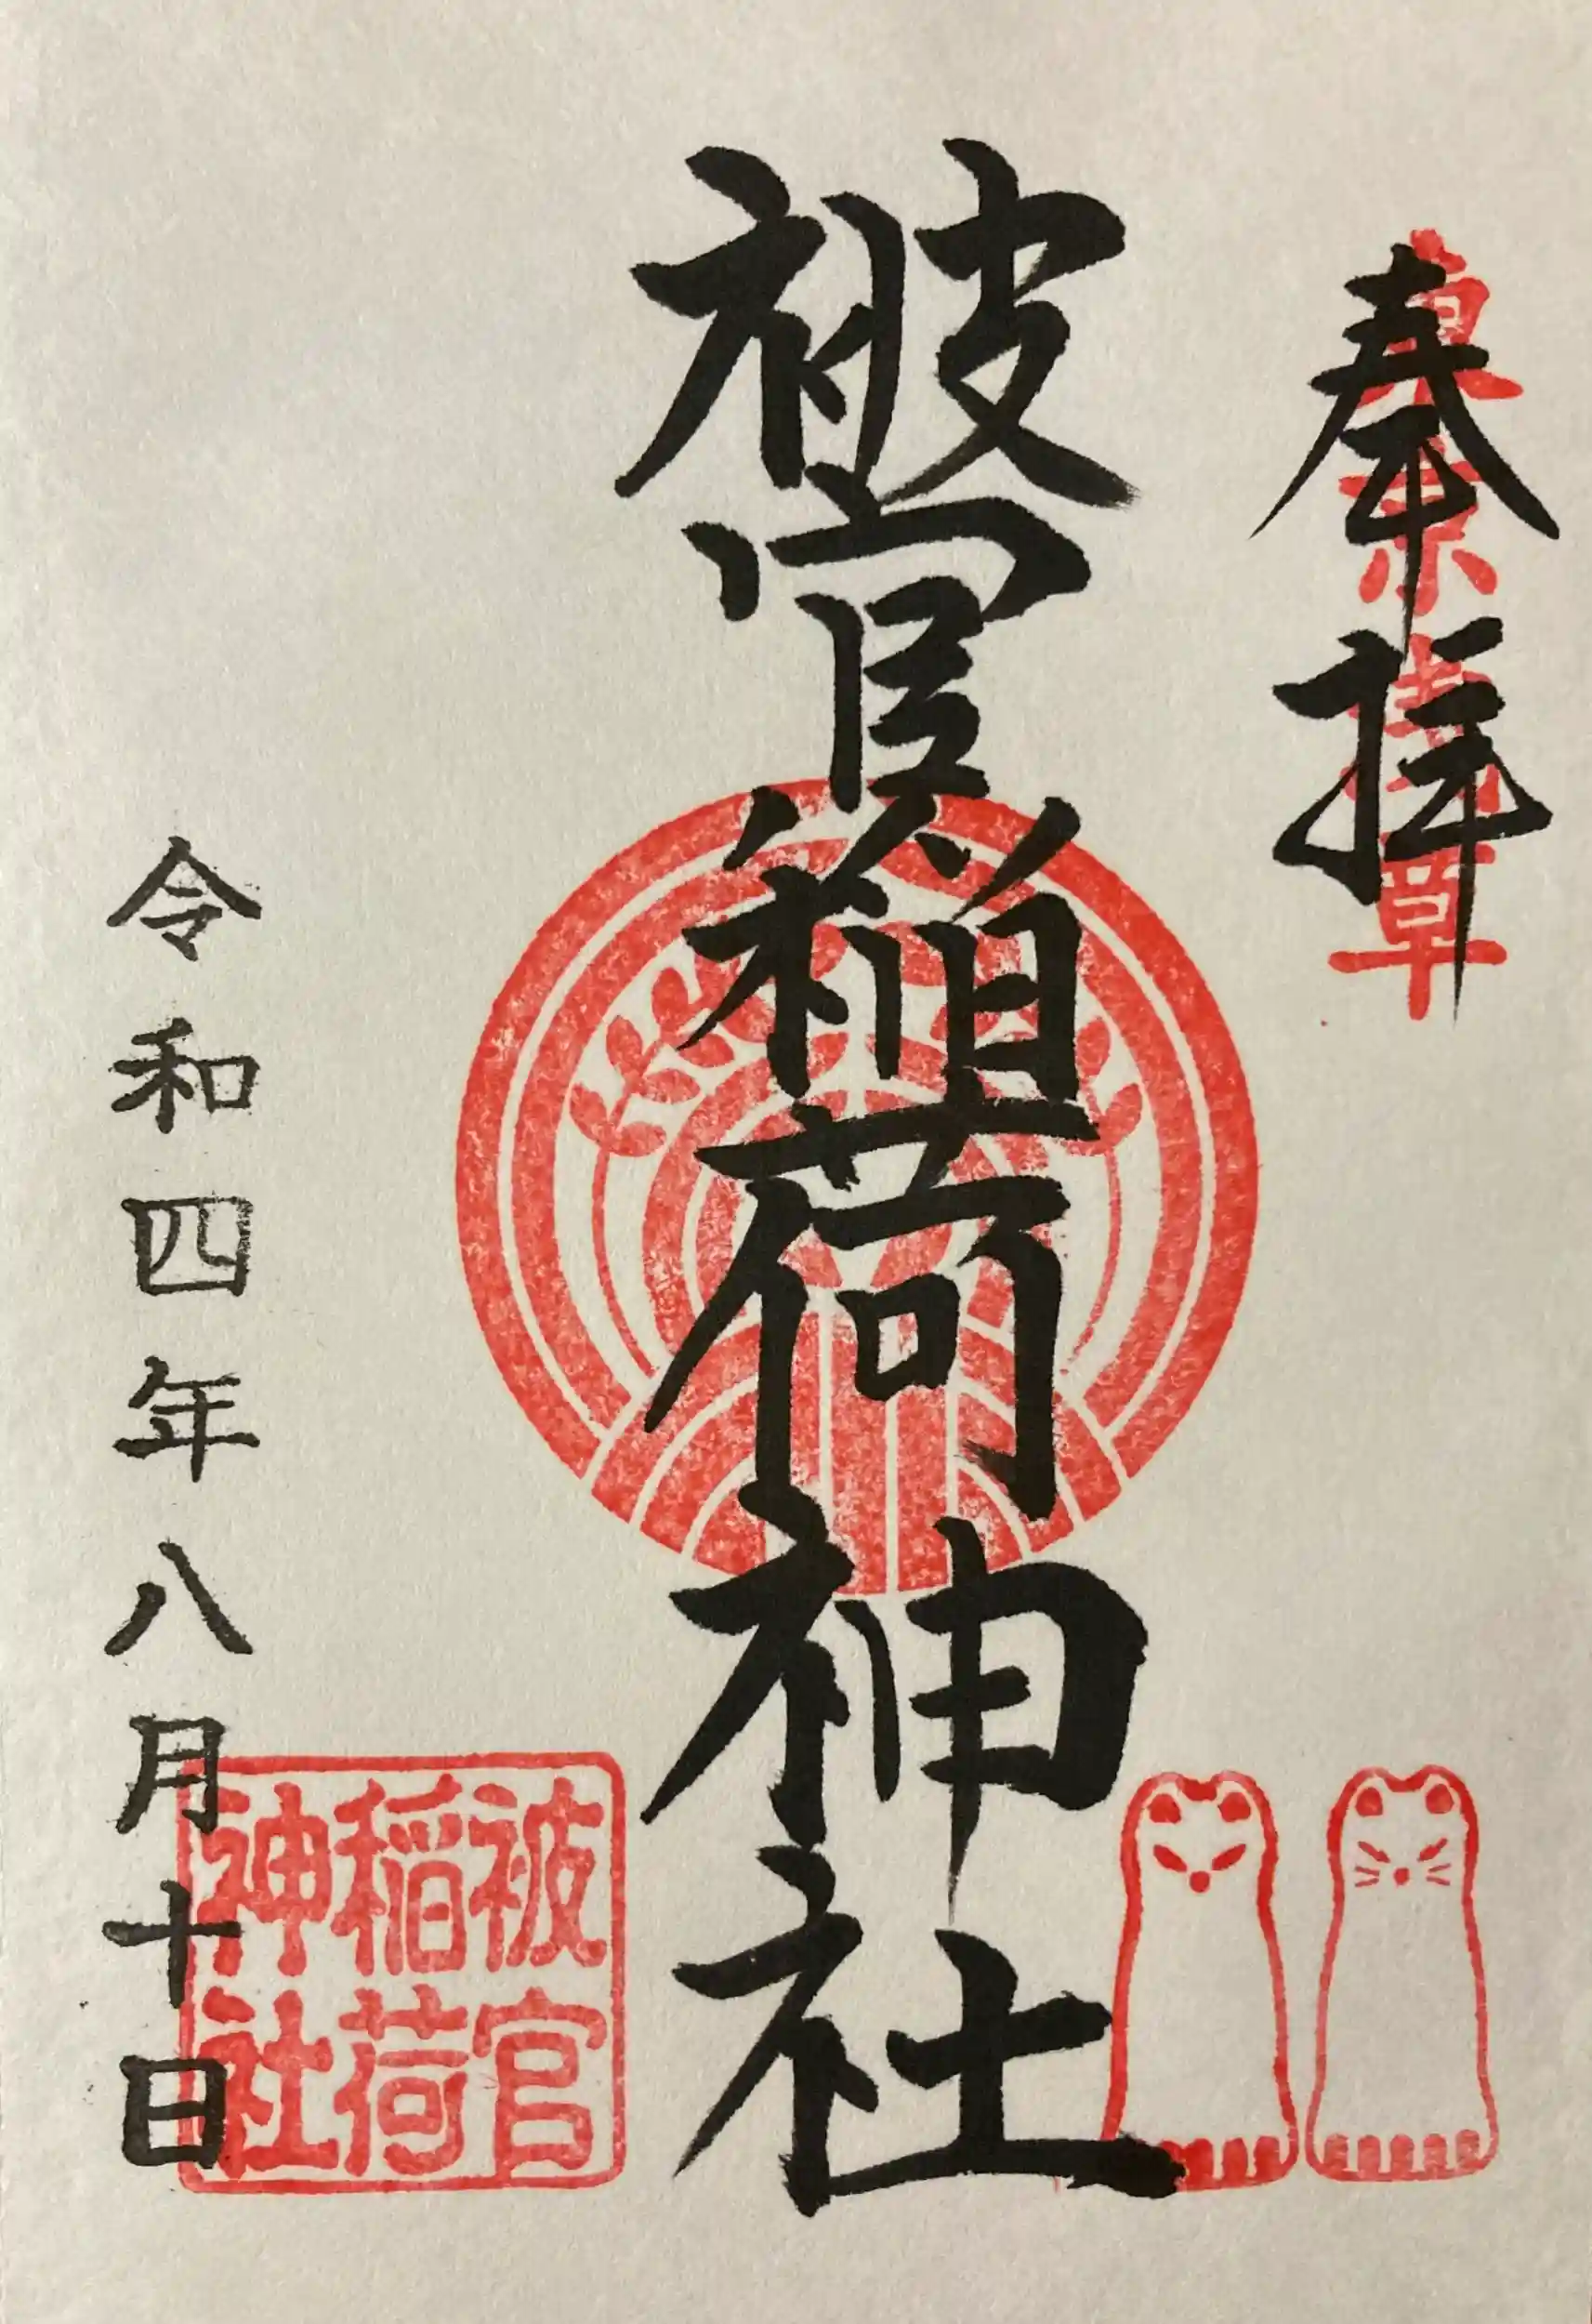 奉拝
東京浅草
被官稲荷神社
被官
稲荷
神社
令和四年八月十日